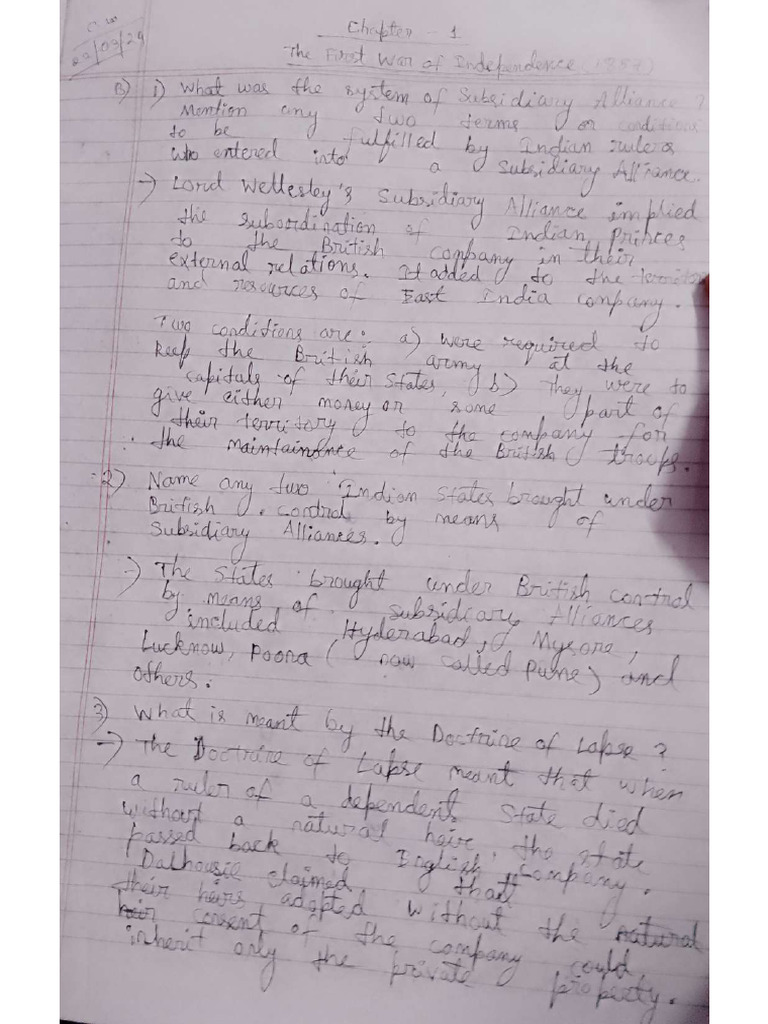 C.W
22/03/24
Chapter - 1
The First War of Independence (1857)
B) 1) What was the system of Subsidiary Alliance ?
Mention any two terms or conditions
to be fulfilled by Indian rulers
who entered into a Subsidiary Alliance.
→ Lord Wellesley's Subsidiary Alliance implied
the subordination of Indian Princes
to the British company in their
external relations. It added to the territory
and resources of East India company.
Two conditions are: a) were required to
keep the British army at the
capitals of their States, b) They were to
give either money or some part of
their territory to the company for
the maintainence of the British troops.
2) Name any two Indian States brought under
British control by means of
Subsidiary Alliances.
→ The States brought under British control
by means of subsidiary Alliances
included Hyderabad, Mysore,
Lucknow, Poona ( now called Pune) and
others.
3) What is meant by the Doctrine of Lapse ?
→ The Doctrine of Lapse meant that when
a ruler of a dependent State died
without a natural heir, the state
passed back to English Company.
Dalhousie claimed that
their heirs, adopted without the natural
heir consent of the company could
inherit only the private property.